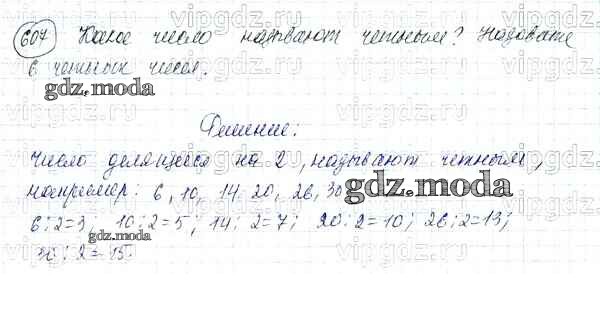 607 Какое число называют четным? Назовите
6 четных чисел.
gdz.moda
Решение:
Число делящееся на 2, называют четным,
например: 6, 10, 14 20, 26, 30
gdz.moda
6:2=3; 10:2=5; 14:2=7; 20:2=10; 26:2=13;
gdz.moda
30:2=15.
vipgdz.com